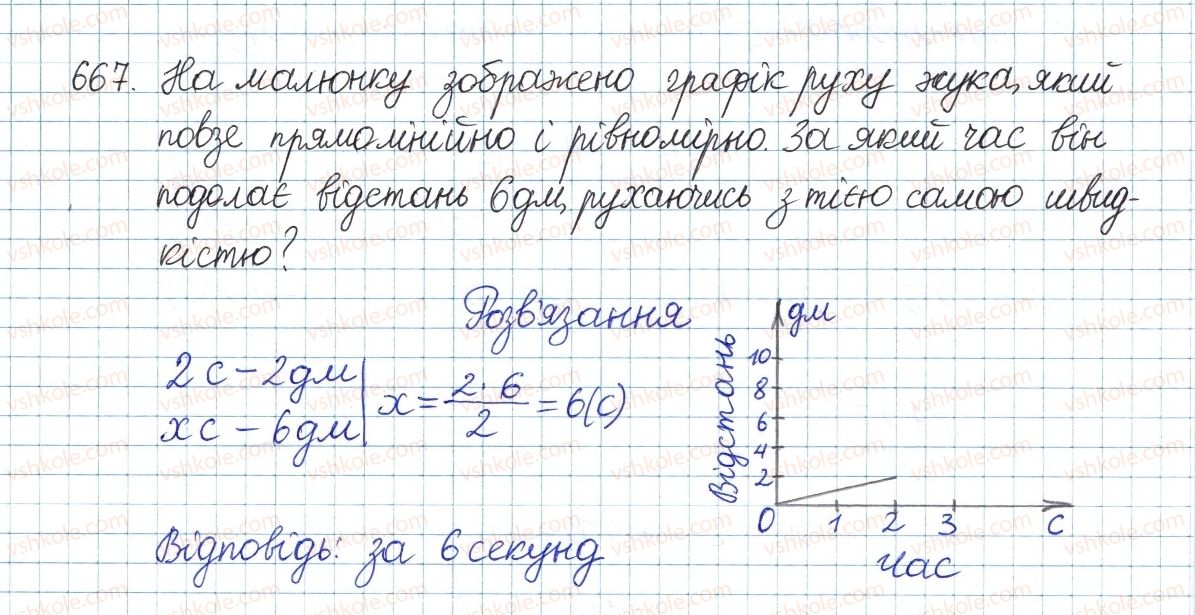 667. На малюнку зображено графік руху жука, який
повзе прямолінійно і рівномірно. За який час він
подолає відстань 6дм, рухаючись з тією самою швид-
кістю?
Розв'язання
2 с – 2дм
х с – 6дм
х = 2 · 6 / 2 = 6(с)
Відповідь: за 6 секунд
дм
Відстань
10
8
6
4
2
0 1 2 3 с
Час
vshkole.com